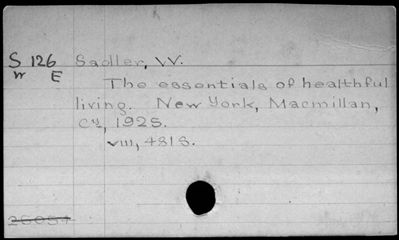 S 126 Sadler, W.
W E
The essentials of healthful
living. New York, Macmillan,
cy, 1925.
VIII, 481 S.